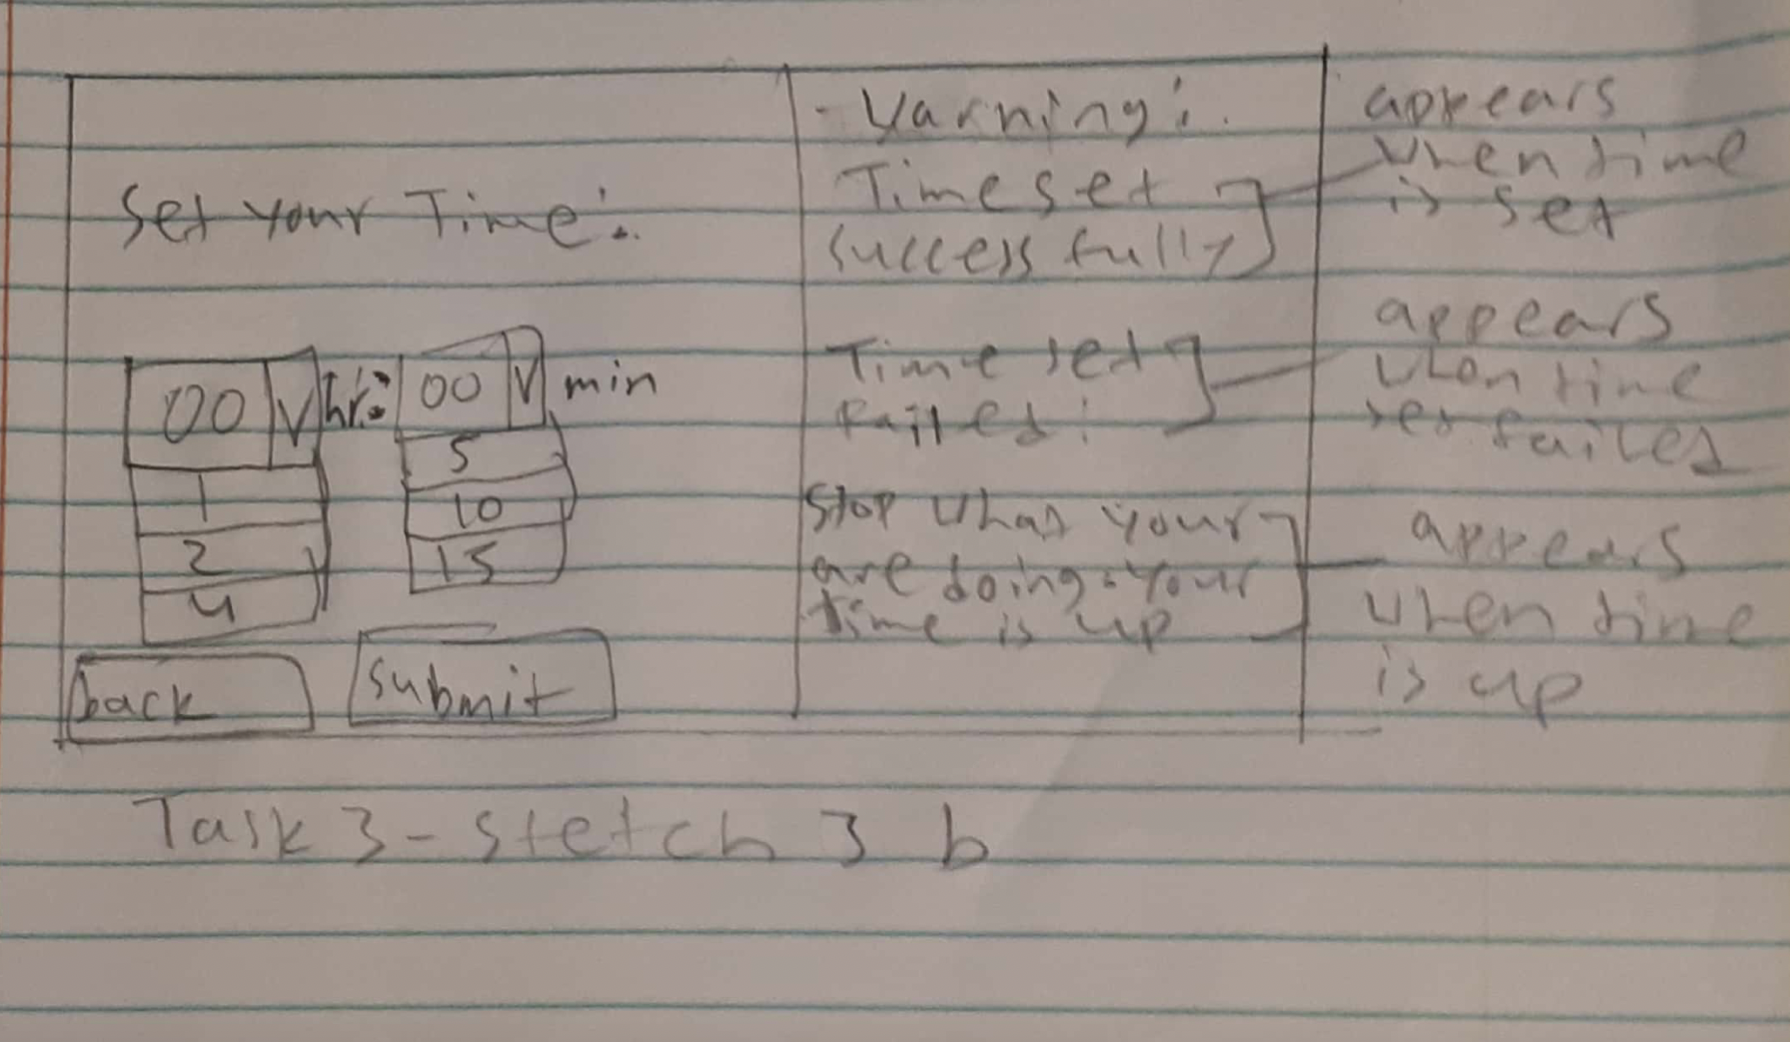 Set your Time:
00 V hr: 00 V min
1
2
4
5
10
15
back
submit
- Warning:
Time set
successfully
Time set
Failed!
Stop what your
are doing. Your
time is up
appears
when time
is set
appears
when time
set failed
appears
when time
is up
Task 3 - stetch 3 b